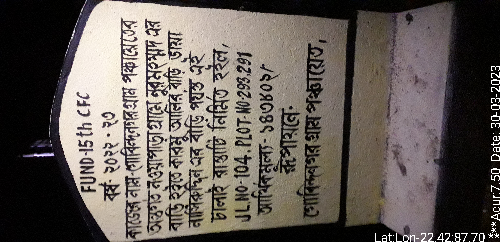 FUND-15th CFC
বর্ষ- ২০২২-২৩
কাজের নাম-গোবিন্দনগর গ্রাম পঞ্চায়েতের
অন্তর্গত নওয়াপাড়া গ্রামে নুরমহম্মদ এর
বাড়ি হইতে কাবম আলির বাড়ি ভায়া
নাসিরুদ্দিন এর বাড়ি পর্যন্ত এই
ঢালাই রাস্তাটি নির্মিত হইল,
J.L.NO-104, PLOT-NO-293,291
আর্থিকমূল্য- ১৪৩৪০২৲
রূপায়নে-
গোবিন্দনগর গ্রাম পঞ্চায়েত,
Lat:Lon-22.42:87.70
7.50 Date:30-03-2023